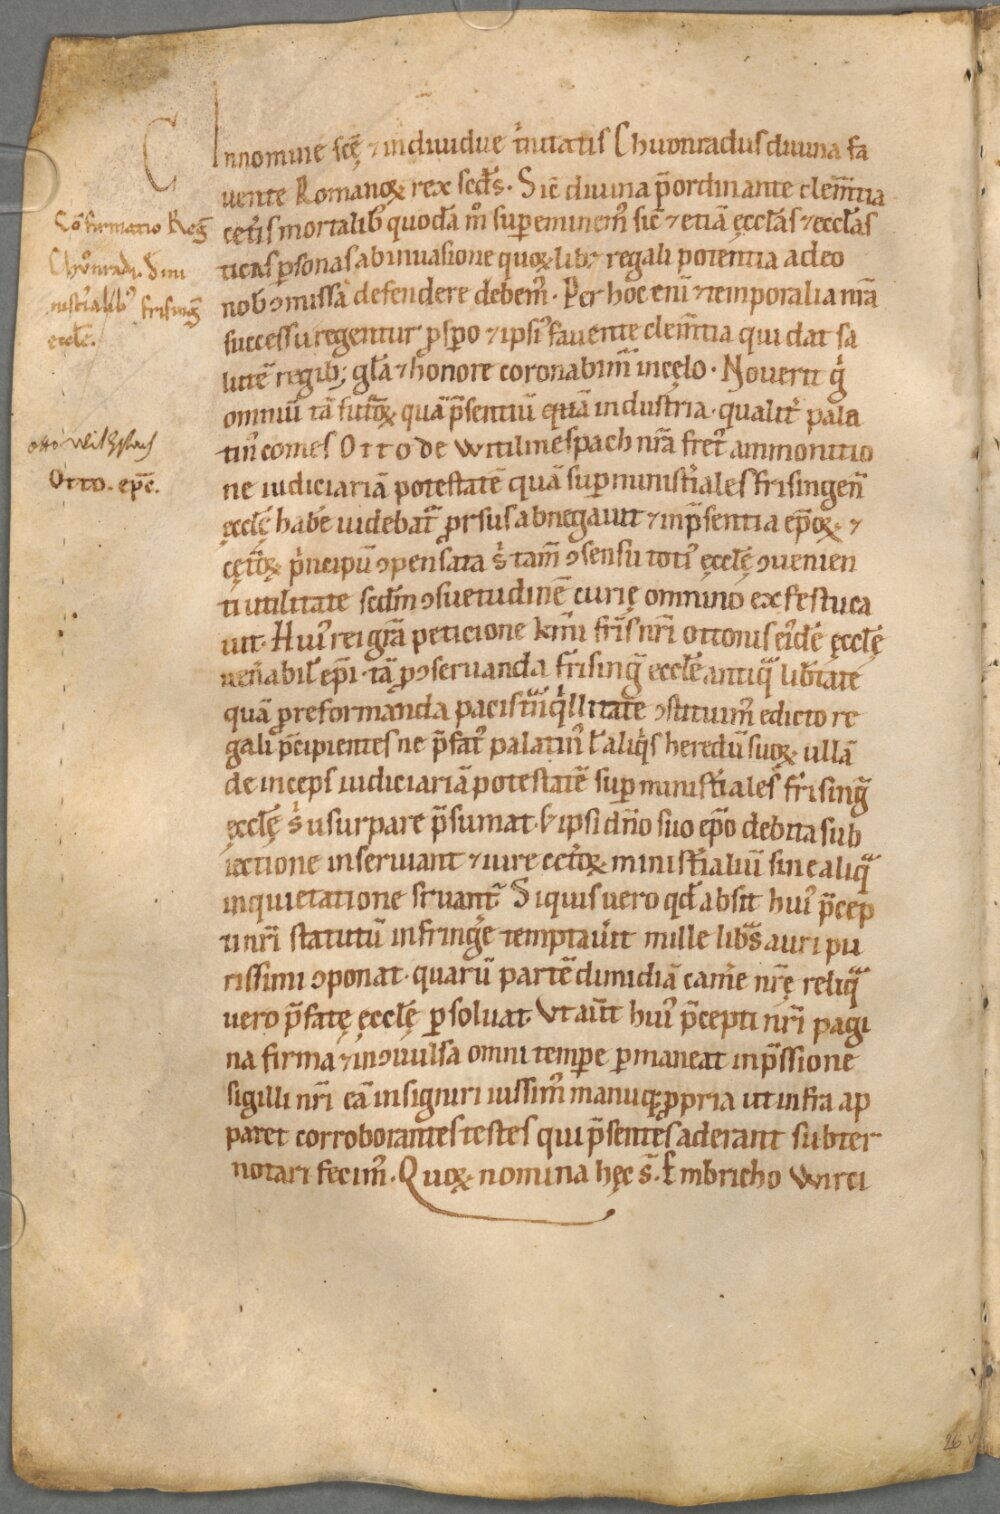 C
In nomine scę ⁊ indiuidue t'nitatis Chvonradus diuina fa
uente Romanoꝝ rex scds. Sic̄ diuina p̄ordinante clem̄tia
cet'is mortalib' quodā m° sup eminem' sic̄ ⁊ etiā ęccl̄as ⁊ eccl̄as
ticas ꝑsonas ab inuasione quoꝝlib; regali potentia a deo
nob' ꝯmissa defendere debem'. Per hoc eni ⁊ temporalia n̄ra
successu regentur ꝓspo ⁊ ipsi' fauente clem̄tia qui dat sa
lutē regib; gl̄a ⁊ honore coronabim̄ in cęlo. Nouerit g°
omniū tā futoꝝ quā p̄sentiū equa industria. qualit' pala
tin' comes Otto de Witilinespach nr̄a fret' ammonitio
ne iudiciariā potestatē quā sup minist'iales frisingen̄
ęccl̄ę habe uidebat' ꝓrsus abnegauit ⁊ in p̄sentia ep̄oꝝ ⁊
cęt'oꝝ p'ncipū ꝯpensata s; tam̄ ꝯsensu toti' ęccl̄ę ꝯuenien
ti utilitate scd̄m ꝯsuetudinē curię omnino exfestuca
uit. Hui' rei gr̄a peticione k̄mi fr̄is nr̄i ottonis ei'dē ęccl̄ę
uen̄abil' ep̄i. tā ꝓ ꝯseruanda frising̅ eccl̄e antiq̄ lib'tate
quā ꝓ reformanda pacis t̄nq'llitate ꝯstituim' edicto re
gali p̄cipientes ne p̄fat' palatin' l' aliq's heredū suoꝝ ullā
de inceps iudiciariā potestatē sup minist'iales frising̅
ęccl̄ę s' usurpare p̄sumat. s; ipsi dn̄o suo ep̄o debita sub
iectione inseruiant ⁊ iure cet'oꝝ minist'ialiū sine aliq̄
inquietatione fruant'. Si quis uero qd̄ absit hui' p̄cep
ti nr̄i statutū infringe temptau'it mille lib̄s auri pu
rissimi ꝯponat. quarū partē dimidiā came nr̄ę reliq̄
uero p̄fatę ęccl̄ę ꝑsoluat. Vt aut̄ hui' p̄cepti nr̄i pagi
na firma ⁊ inꝯuulsa omni tempe ꝑmaneat inp̄ssione
sigilli nr̄i eā insigniri iussim' manuq; ꝓpria ut infra ap
paret corroborantes testes qui p̄sentes aderant subter
notari fecim'. Quoꝝ nomina hęc s̄. Embricho Wirci
Cōfirmatio Reg̅
Chvonradi. d mi
nist'ialib' frising̅
eccl̄e.
otto Witlspach
Otto. ep̄c.
26 v